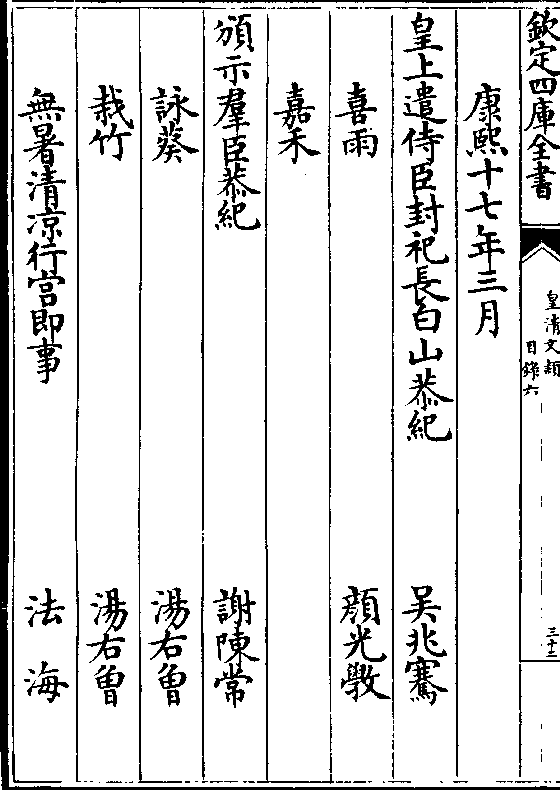 欽定四庫全書
皇清文穎
目錄六
三十二
康熙十七年三月
皇上遣侍臣封祀長白山恭紀 吴兆騫
喜雨 顔光斆
嘉禾
頒示羣臣恭紀 謝陳常
詠葵 湯右曽
栽竹 湯右曽
無暑清凉行宫即事 法海